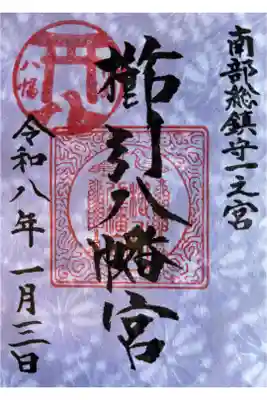 南部総鎮守一之宮
櫛引八幡宮
令和八年 一月三日
八幡